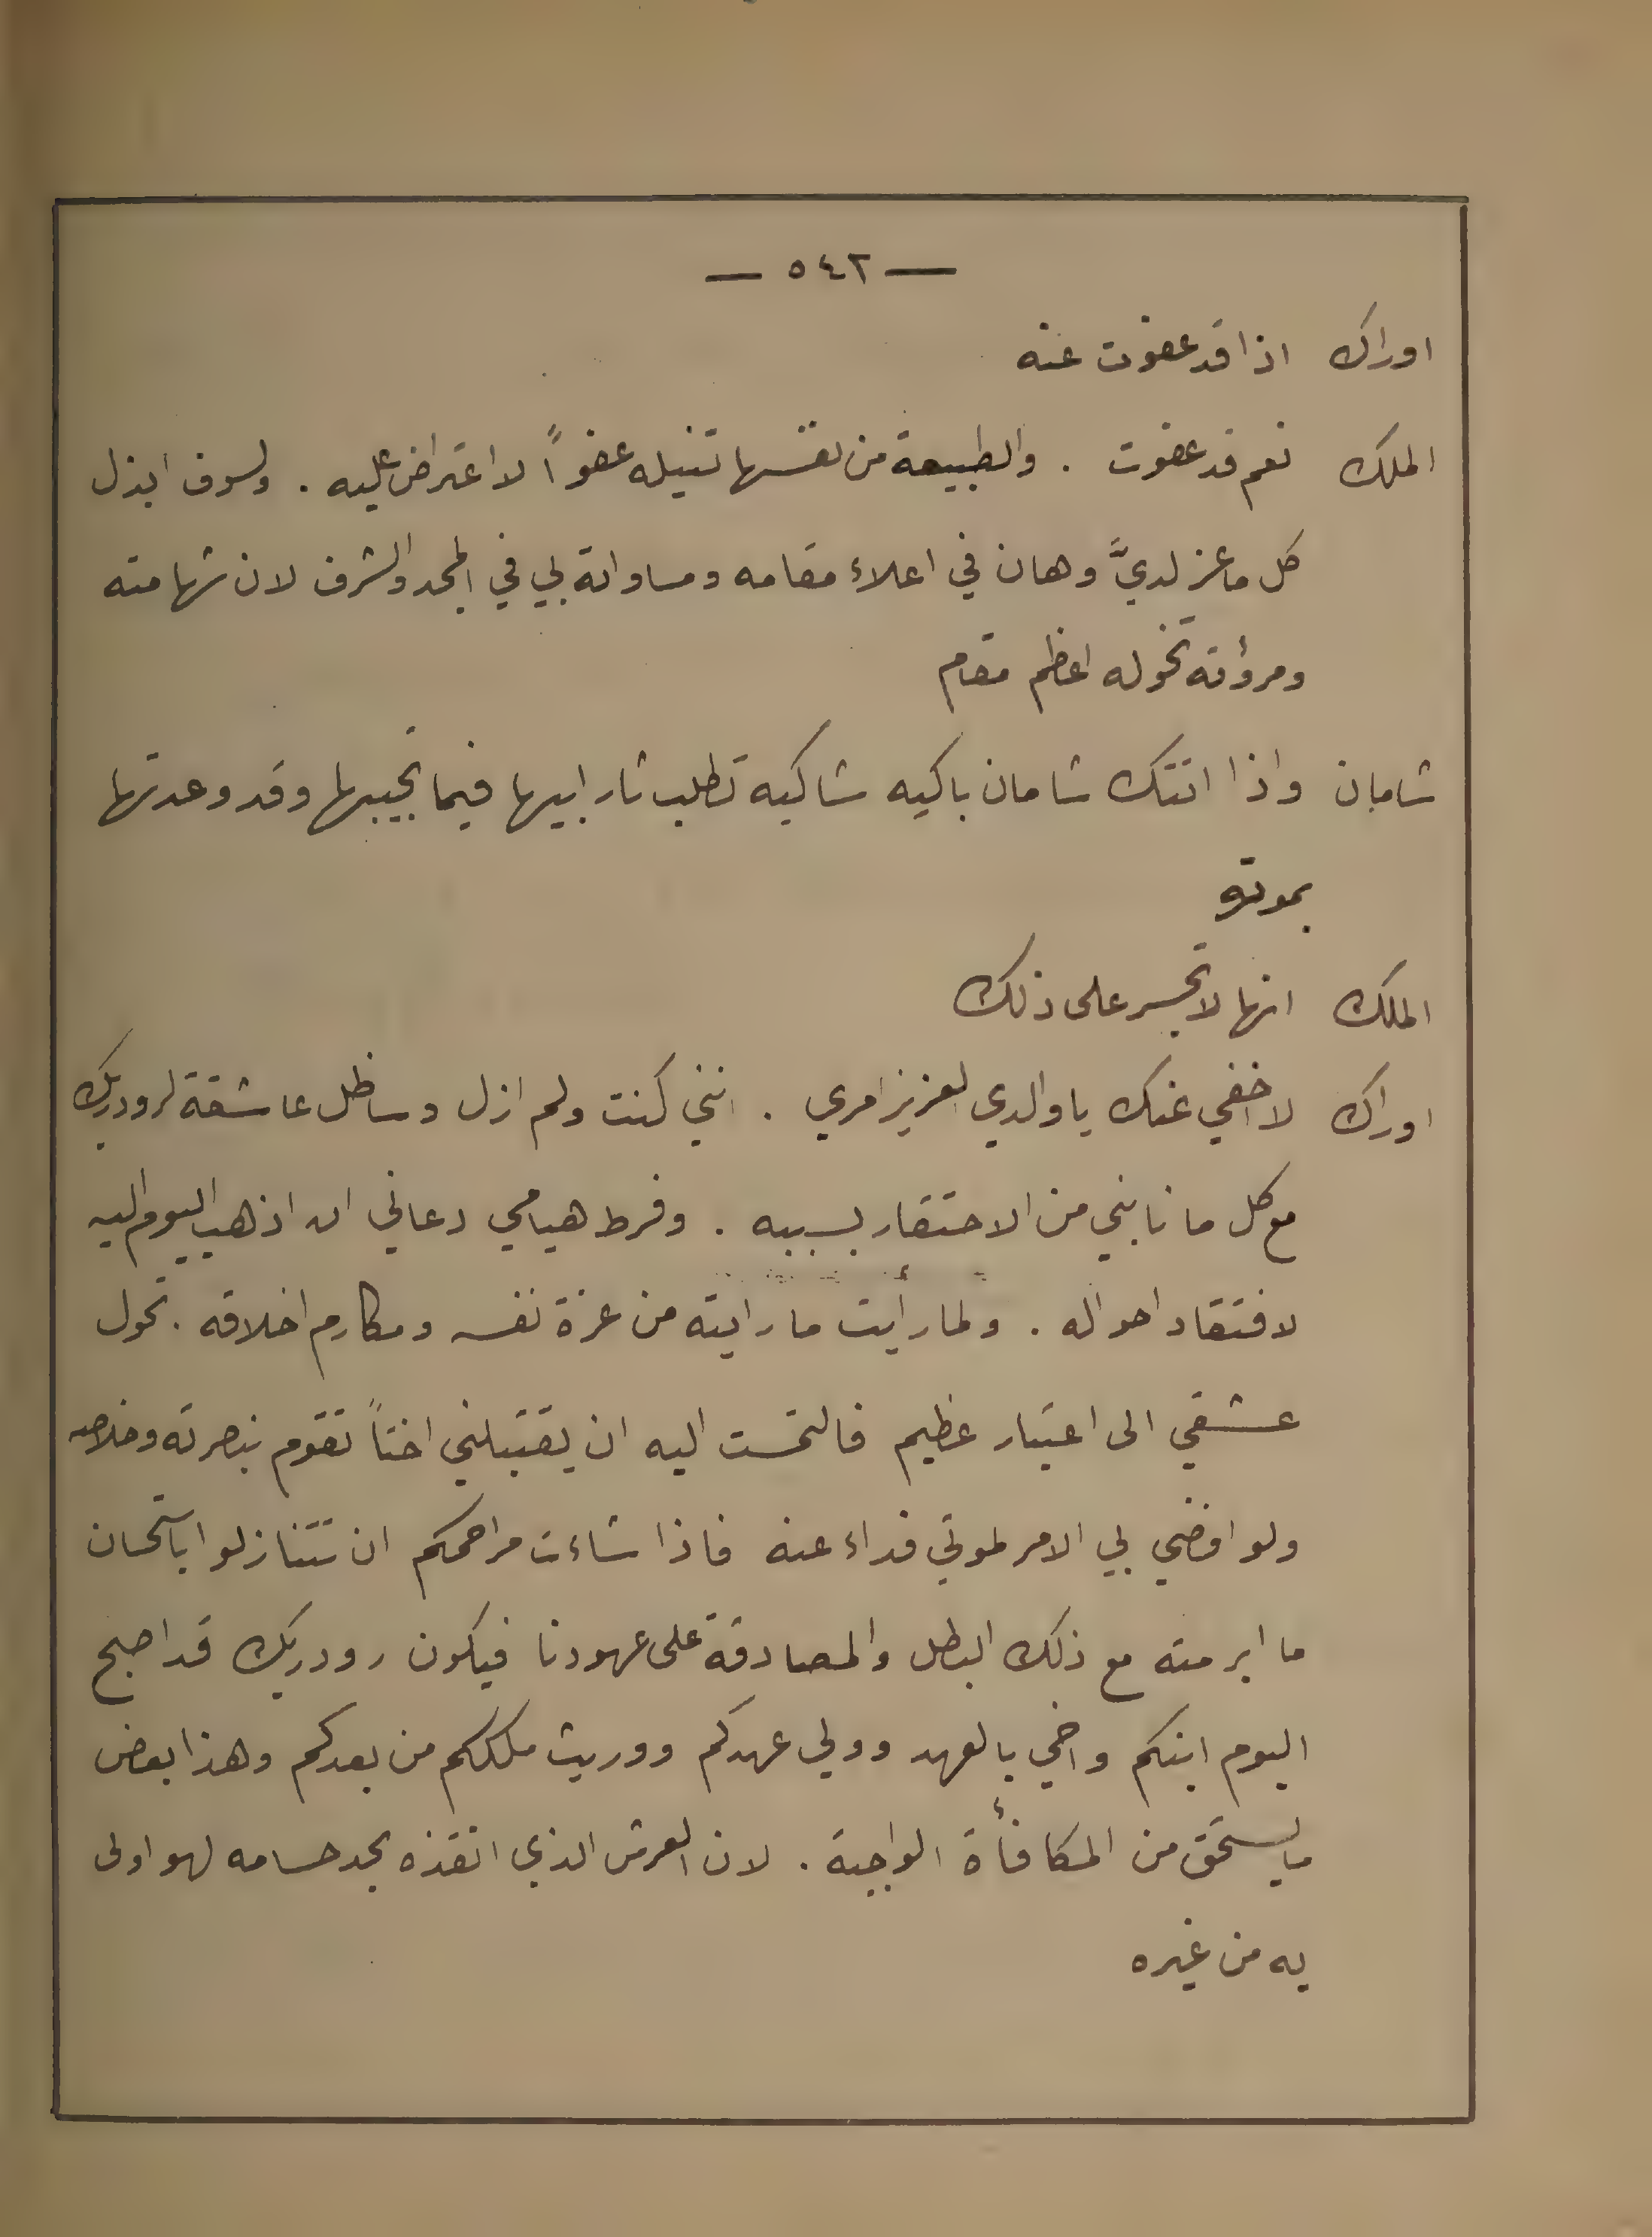 — ٥٤٢ —
اوراك اذا قد عفوت عنه
الملك نعم قد عفوت . والطبيعة من نفسها تنيله عفواً لا اعتراض عليه . ولسوف ابذل
كل ما عز لديَّ وهان في اعلاء مقامه ومساواته لي في المجد والشرف لان شهامته
ومرؤته تخوله اعظم مقام
شامان واذا اتتك شامان باكيه شاكيه تطلب ثار ابيها فيما تجيبها وقد وعدتها
بموته
الملك انها لا تجسر على ذلك
اوراك لا اخفي عنك يا والدي العزيز امري . انني كنت ولم ازل وساظل عاشقة لرودريك
مع كل ما نابني من الاحتقار بسببه . وفرط هيامي دعاني ان اذهب اليوم اليه
لافتقاد احواله . ولما رأيت ما رايته من عزة نفسه ومكارم اخلاقه . تحول
عشقي الى اعتبار عظيم فالتمست اليه ان يقتبلني اختاً تقوم بنصرته وخلاصه
ولو افضي بي الامر لموتي فداء عنه فاذا شاءت مراحمكم ان تتنازلوا باستحسان
ما ابرمته مع ذلك البطل والمصادقة على عهودنا فيكون رودريك قد اصبح
اليوم ابنكم واخي بالعهد وولي عهدكم ووريث ملككم من بعدكم وهذا بعض
ما يستحق من المكافأة الواجبة . لان العرش الذي انقذه بحد حسامه لهو اولى
به من غيره